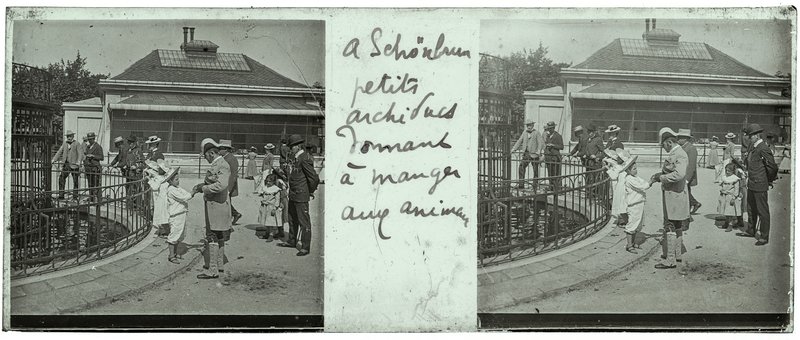 A Schönbrun
petits
archiducs
donnant
à manger
aux animaux